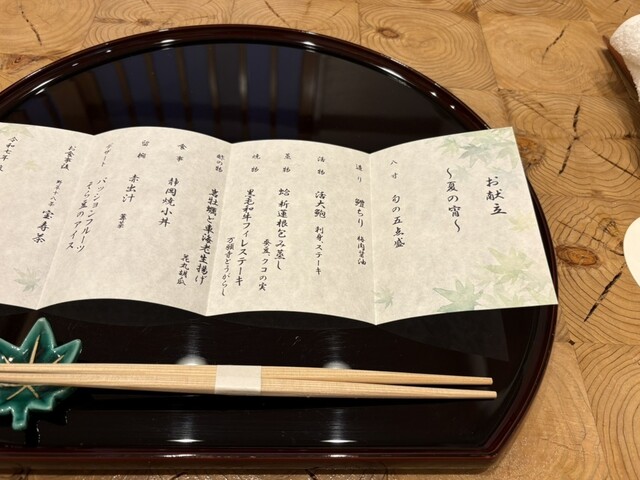 お献立
～夏の宵～
八寸 旬の五点盛
造り 鱧ちり 梅肉醤油
活物 活大鮑 刺身ステーキ
蒸物 蛤 新蓮根包み蒸し
蚕豆 クコの実
焼物 黒毛和牛フィレステーキ
万願寺とうがらし
岩牡蠣と車海老生揚げ
花丸胡瓜
食事 静岡焼小丼
留椀 赤出汁
デザート パッションフルーツ
そら豆のアイス
お食事後 宝寿茶
令和七年